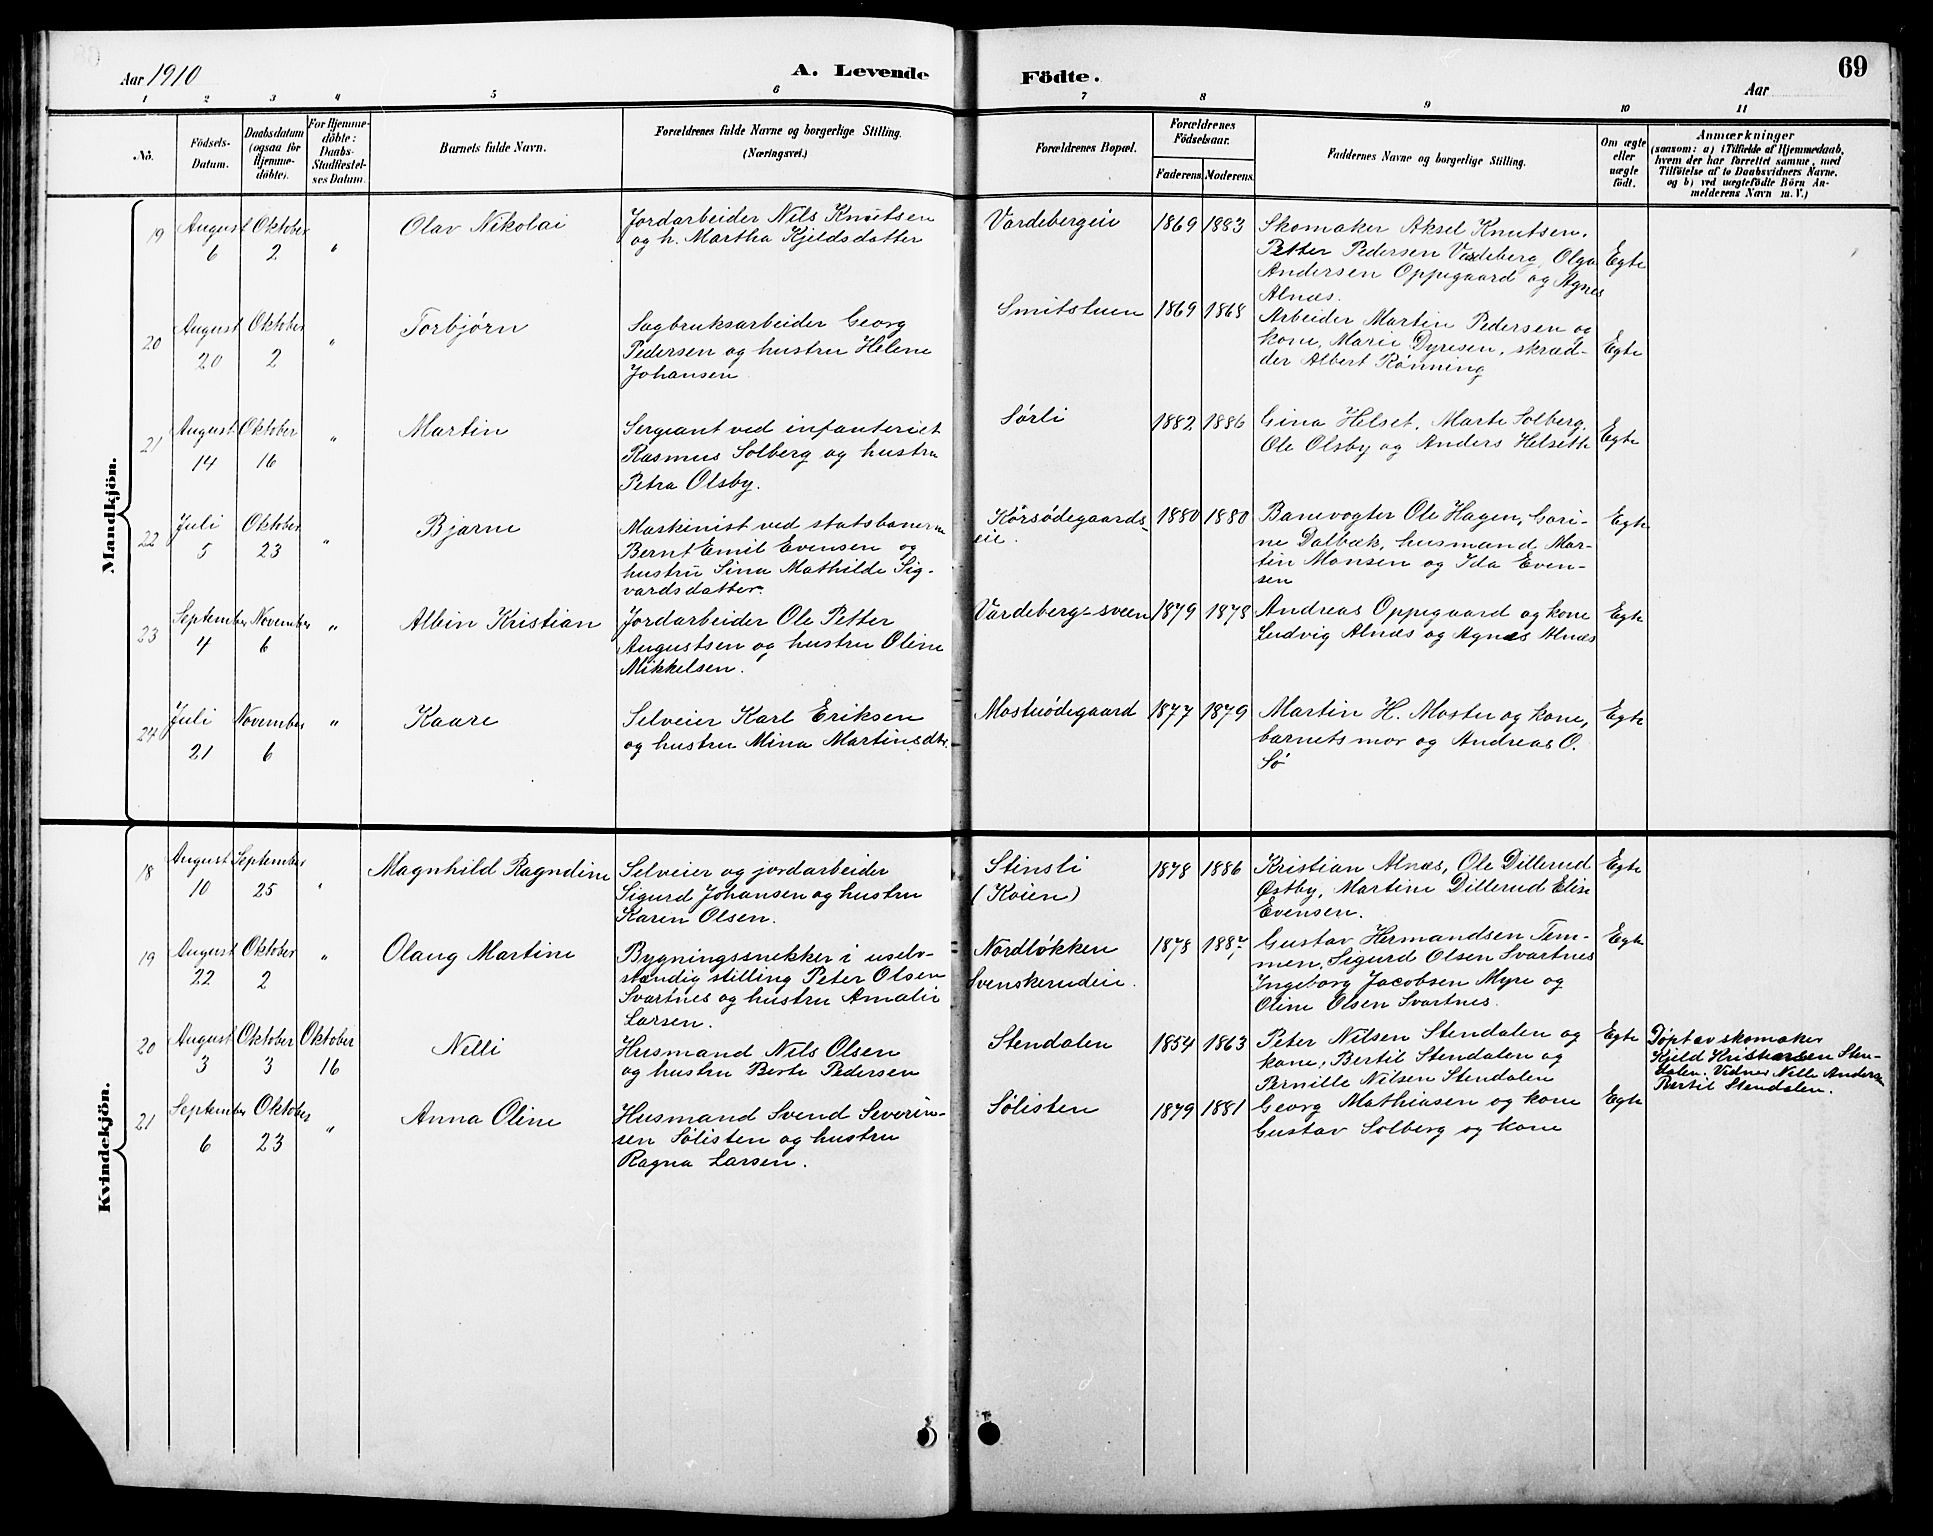 Aar 1910
A. Levende
Födte.
69
Aar
1 2 3 4 5 6 7 8 9 10 11
No.
Födsels-
Datum.
Daabsdatum
(ogsaa for
Hjemme-
döbte).
For Hjemme-
döbte:
Daabs-
Stadfæstel-
ses Datum.
Barnets fulde Navn.
Forældrenes fulde Navne og borgerlige Stilling.
(Næringsvei.)
Forældrenes Bopæl.
Forældrenes
Födselsaar.
Faderens. Moderens.
Faddernes Navne og borgerlige Stilling.
Om ægte
eller
uægte
födt.
Anmærkninger
(saasom: a) i Tilfælde af Hjemmedaab,
hvem der har forrettet samme, med
Tilföielse af to Daabsvidners Navne,
og b) ved uægtefödte Börn An-
melderens Navn m. V.)
Mandkjön.
19
August
6
Oktober
2
"
Olav Nikolai
Jordarbeider Nils Knutsen
og h. Martha Kjeldsdatter
Vardebergeie
1869 1883
Skomaker Aksel Knutsen,
Petter Pedersen Vardeberg, Olga
Andersen Oppegaard og Agnes
Alnæs.
Egte
20
August
20
Oktober
2
"
Torbjørn
Sagbruksarbeider Georg
Pedersen og hustru Helene
Johansen
Smitstuen
1869 1868
Arbeider Martin Pedersen og
kone, Marie Dyresen, skræd-
der Albert Rönning
Egte
21
August
14
Oktober
16
"
Martin
Sergeant ved infanteriet
Rasmus Solberg og hustru
Petra Olsby.
Sørli
1882 1886
Gina Helset, Marte Solberg,
Ole Olsby og Anders Helsette
Egte
22
Juli
5
Oktober
23
"
Bjarne
Maskinist ved statsbanerne
Bernt Emil Evensen og
hustru Sina Mathilde Sig-
vardsdatter.
Korsødegaards-
eie.
1880 1880
Banevogter Ole Hagen, Gori-
ne Dalbæk, husmand Mar-
tin Monsen og Ida Even-
sen
Egte
23
September
4
November
6
"
Albin Kristian
Jordarbeider Ole Petter
Augustsen og hustru Oline
Mikkelsen.
Vardeberg-sveen
1879 1878
Andreas Oppegaard og kone
Ludvig Alnæs og Agnes Alnæs
Egte
24
Juli
21
November
6
"
Kaare
Selveier Karl Eriksen
og hustru Mina Martinsdtr.
Mostuødegaard
1877 1879
Martin H. Moster og kone,
barnets mor og Andreas O.
Sø
Egte
Kvindekjön.
18
August
10
September
25
"
Magnhild Ragndine
Selveier og jordarbeider
Sigurd Johansen og hustru
Karen Olsen.
Stinsli
(Koien)
1878 1886
Kristian Alnæs, Ole Dillerud
Østby, Martine Dillerud Elise
Evensen.
Egte
19
August
22
Oktober
2
"
Olaug Martine
Bygningssnekker i uselv-
stændig stilling Peter Olsen
Svartnes og hustru Amalie
Larsen.
Nordløkken
Svenskerudeie.
1878 1887
Gustav Hermandsen Tem-
men, Sigurd Olsen Svartnes
Ingeborg Jacobsen Myre og
Oline Olsen Svartnes.
Egte
20
August
3
Oktober
3
Oktober
16
Nelli
Husmand Nils Olsen
og hustru Berte Pedersen
Stendalen
1854 1863
Peter Nilsen Stendalen og
kone, Bertil Stendalen og
Pernille Nilsen Stendalen
Egte
Døpt av skomaker
Kjeld Kristiansen Sten-
dalen. Vidner Nille Andersen
Bertil Stendalen.
21
September
6
Oktober
23
"
Anna Oline
Husmand Svend Severin-
sen Sølisten og hustru
Ragna Larsen.
Sølisten
1879 1881
Georg Mathiasen og kone
Gustav Solberg og kone
Egte